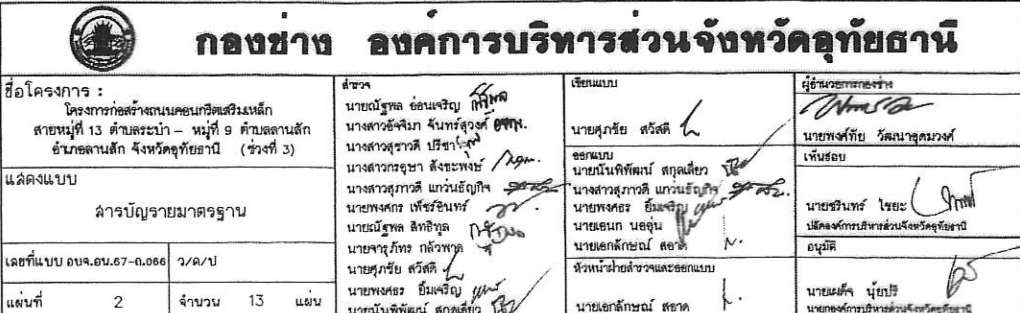 กองช่าง องค์การบริหารส่วนจังหวัดอุทัยธานี
ชื่อโครงการ :
โครงการก่อสร้างถนนคอนกรีตเสริมเหล็ก
สายหมู่ที่ 13 ตำบลระบำ – หมู่ที่ 9 ตำบลลานสัก
อำเภอลานสัก จังหวัดอุทัยธานี (ช่วงที่ 3)
แสดงแบบ
สารบัญรายมาตรฐาน
เลขที่แบบ อบจ.อน.67-ถ.066 ว/ด/ป
แผ่นที่ 2 จำนวน 13 แผ่น
สำรวจ
นายณัฐพล อ่อนเจริญ
นางสาวอัจจิมา จันทร์สุวงศ์
นางสาวสุชาวดี ปรีชา
นางสาวกรอุษา สังขะพงษ์
นางสาวสุภาวดี แกว่นธัญกิจ
นายพงศกร เพ็ชร์อินทร์
นายณัฐพล สิทธิทูล
นายจารุภัทร กลัวพาล
นายศุภชัย สวัสดี
นายพงศธร ยิ้มเจริญ
นายนันพิพัฒน์ สกุลเลี่ยว
เขียนแบบ
นายศุภชัย สวัสดี
ออกแบบ
นายนันพิพัฒน์ สกุลเลี่ยว
นางสาวสุภาวดี แกว่นธัญกิจ
นายพงศธร ยิ้มเจริญ
นายเอนก นออุ่น
นายเอกลักษณ์ สอาด
หัวหน้าฝ่ายสำรวจและออกแบบ
นายเอกลักษณ์ สอาด
ผู้อำนวยการกองช่าง
นายพงศ์ทัย วัฒนาอุดมวงศ์
เห็นชอบ
นายชรินทร์ ไชยะ
ปลัดองค์การบริหารส่วนจังหวัดอุทัยธานี
อนุมัติ
นายเผด็จ นุ้ยปรี
นายกองค์การบริหารส่วนจังหวัดอุทัยธานี